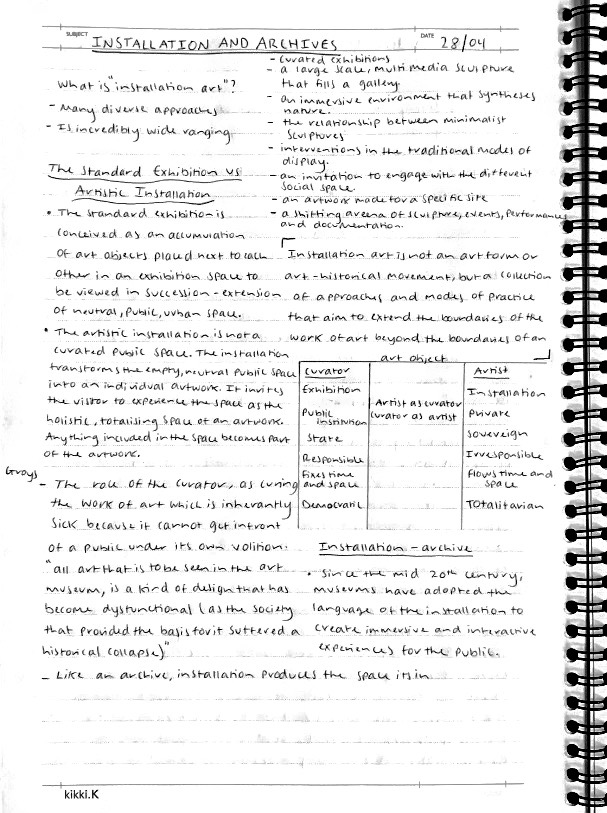 SUBJECT INSTALLATION AND ARCHIVES DATE 28/04
What is "installation art"?
- Many diverse approaches
- Is incredibly wide ranging
- curated exhibitions
- a large scale, multi media sculpture
that fills a gallery
- an immersive environment that syntheses
nature.
- the relationship between minimalist
sculptures
- interventions in the traditional modes of
display.
- an invitation to engage with the different
social space.
- an artwork made for a specific site
- a shifting arena of sculpture, events, performances
and documentation.
The Standard Exhibition vs
Artistic Installation
• The standard exhibition is
conceived as an accumulation
of art objects placed next to each
other in an exhibition space to
be viewed in succession - extension
of neutral, public, urban space.
• The artistic installation is not a
curated public space. The installation
transforms the empty, neutral public space
into an individual artwork. It invites
the visitor to experience the space as the
holistic, totalising space of an artwork.
Anything included in the space becomes part
of the artwork.
Installation art is not an art form or
art-historical movement, but a collection
of approaches and modes of practice
that aim to extend the boundaries of the
work of art beyond the boundaries of an
art object
Curator Artist
Exhibition Installation
Artist as curator
Curator as artist
Public institution Private
State Sovereign
Responsible Irresponsible
Fixes time and space Flows time and space
Democratic Totalitarian
Groys
- The role of the curator, as curing
the work of art which is inherantly
sick because it cannot get infront
of a public under its own volition.
"all art that is to be seen in the art
museum, is a kind of design that has
become dysfunctional (as the society
that provided the basis for it suffered a
historical collapse)"
- Like an archive, installation produces the space its in
Installation - archive
• Since the mid 20th century,
museums have adopted the
language of the installation to
create immersive and interactive
experiences for the public.
kikki.K